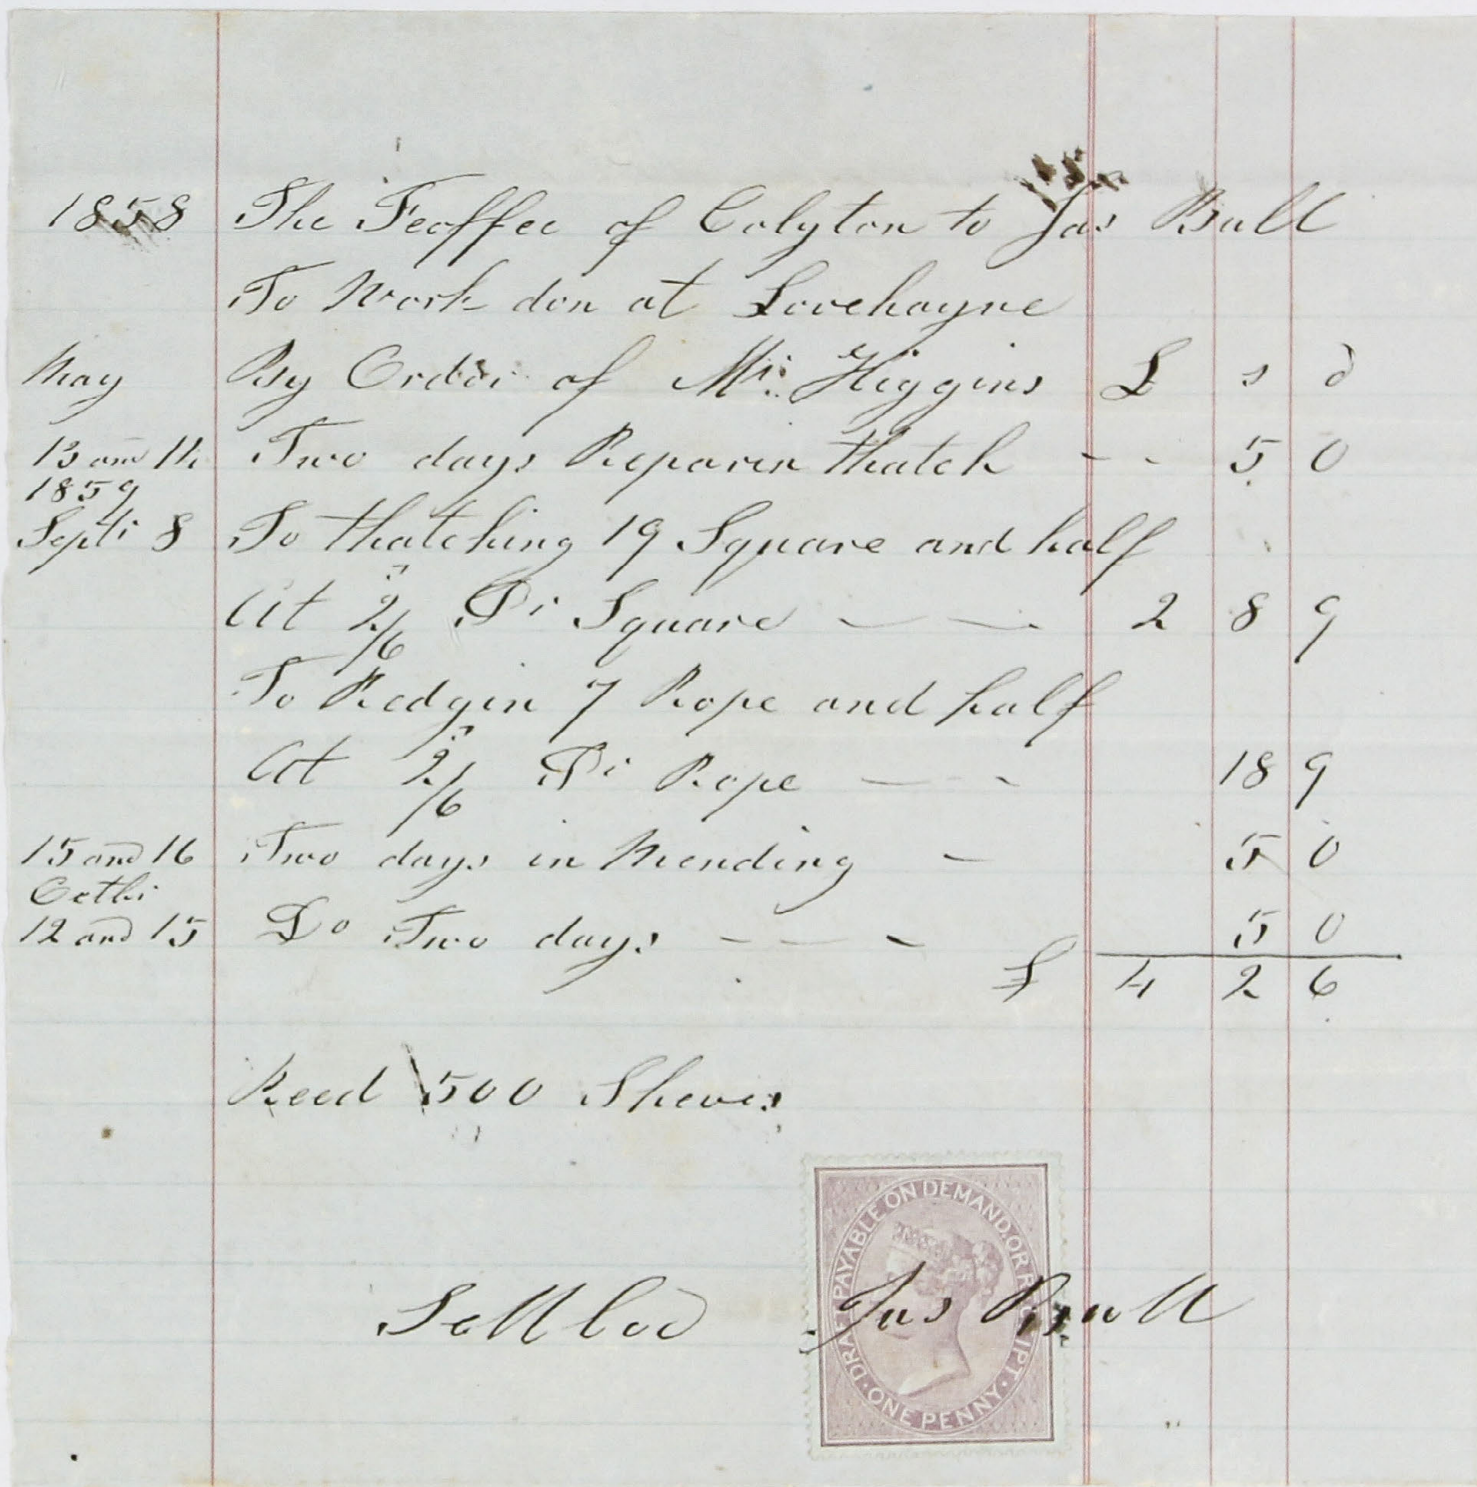 1858 The Feoffee of Colyton to Jas Bull
To Work don at Lovehayne
May By Order of Mr. Higgins £ s d
13 and 14 Two days Reparin thatch -- 5 0
1859
Sept 8 To thatching 19 Square and half
At 2/6 Pr Square — — 2 8 9
To Redgin 7 Rope and half
At 2/6 Pr Rope — - - 18 9
15 and 16 Two days in Mending - 5 0
Octbr
12 and 15 Do Two days - — - 5 0
£ 4 2 6
Reed 500 Sheves
Settled Jas Bull
DRAFT PAYABLE ON DEMAND OR RECEIPT · ONE PENNY ·